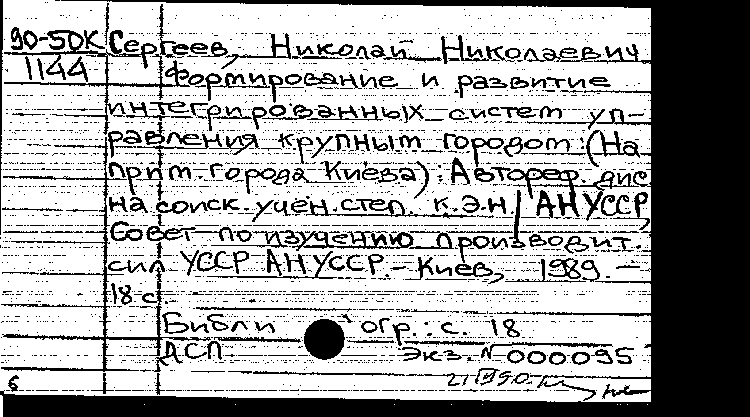 90-50К Сергеев, Николай Николаевич
1144 Формирование и развитие
интегрированных систем уп-
равления крупным городом: (На
прим. города Киева): Автореф. дис
на соиск. учен. степ. к.э.н / АН УССР,
Совет по изучению производит.
сил УССР АН УССР. – Киев, 1989. –
18 с.
Библиогр.: с. 18
ДСП Экз. N 000095
6